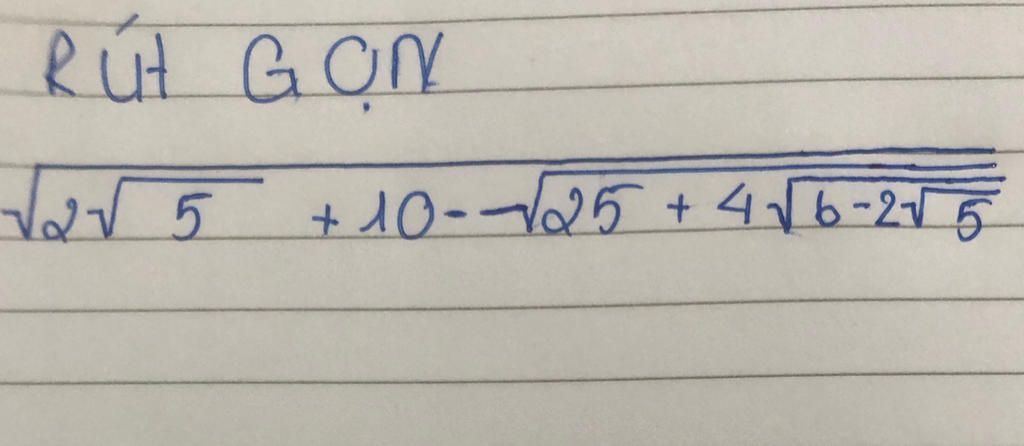 RÚT GỌN
√(2√5 + 10 - -√(25 + 4√(6-2√5)))